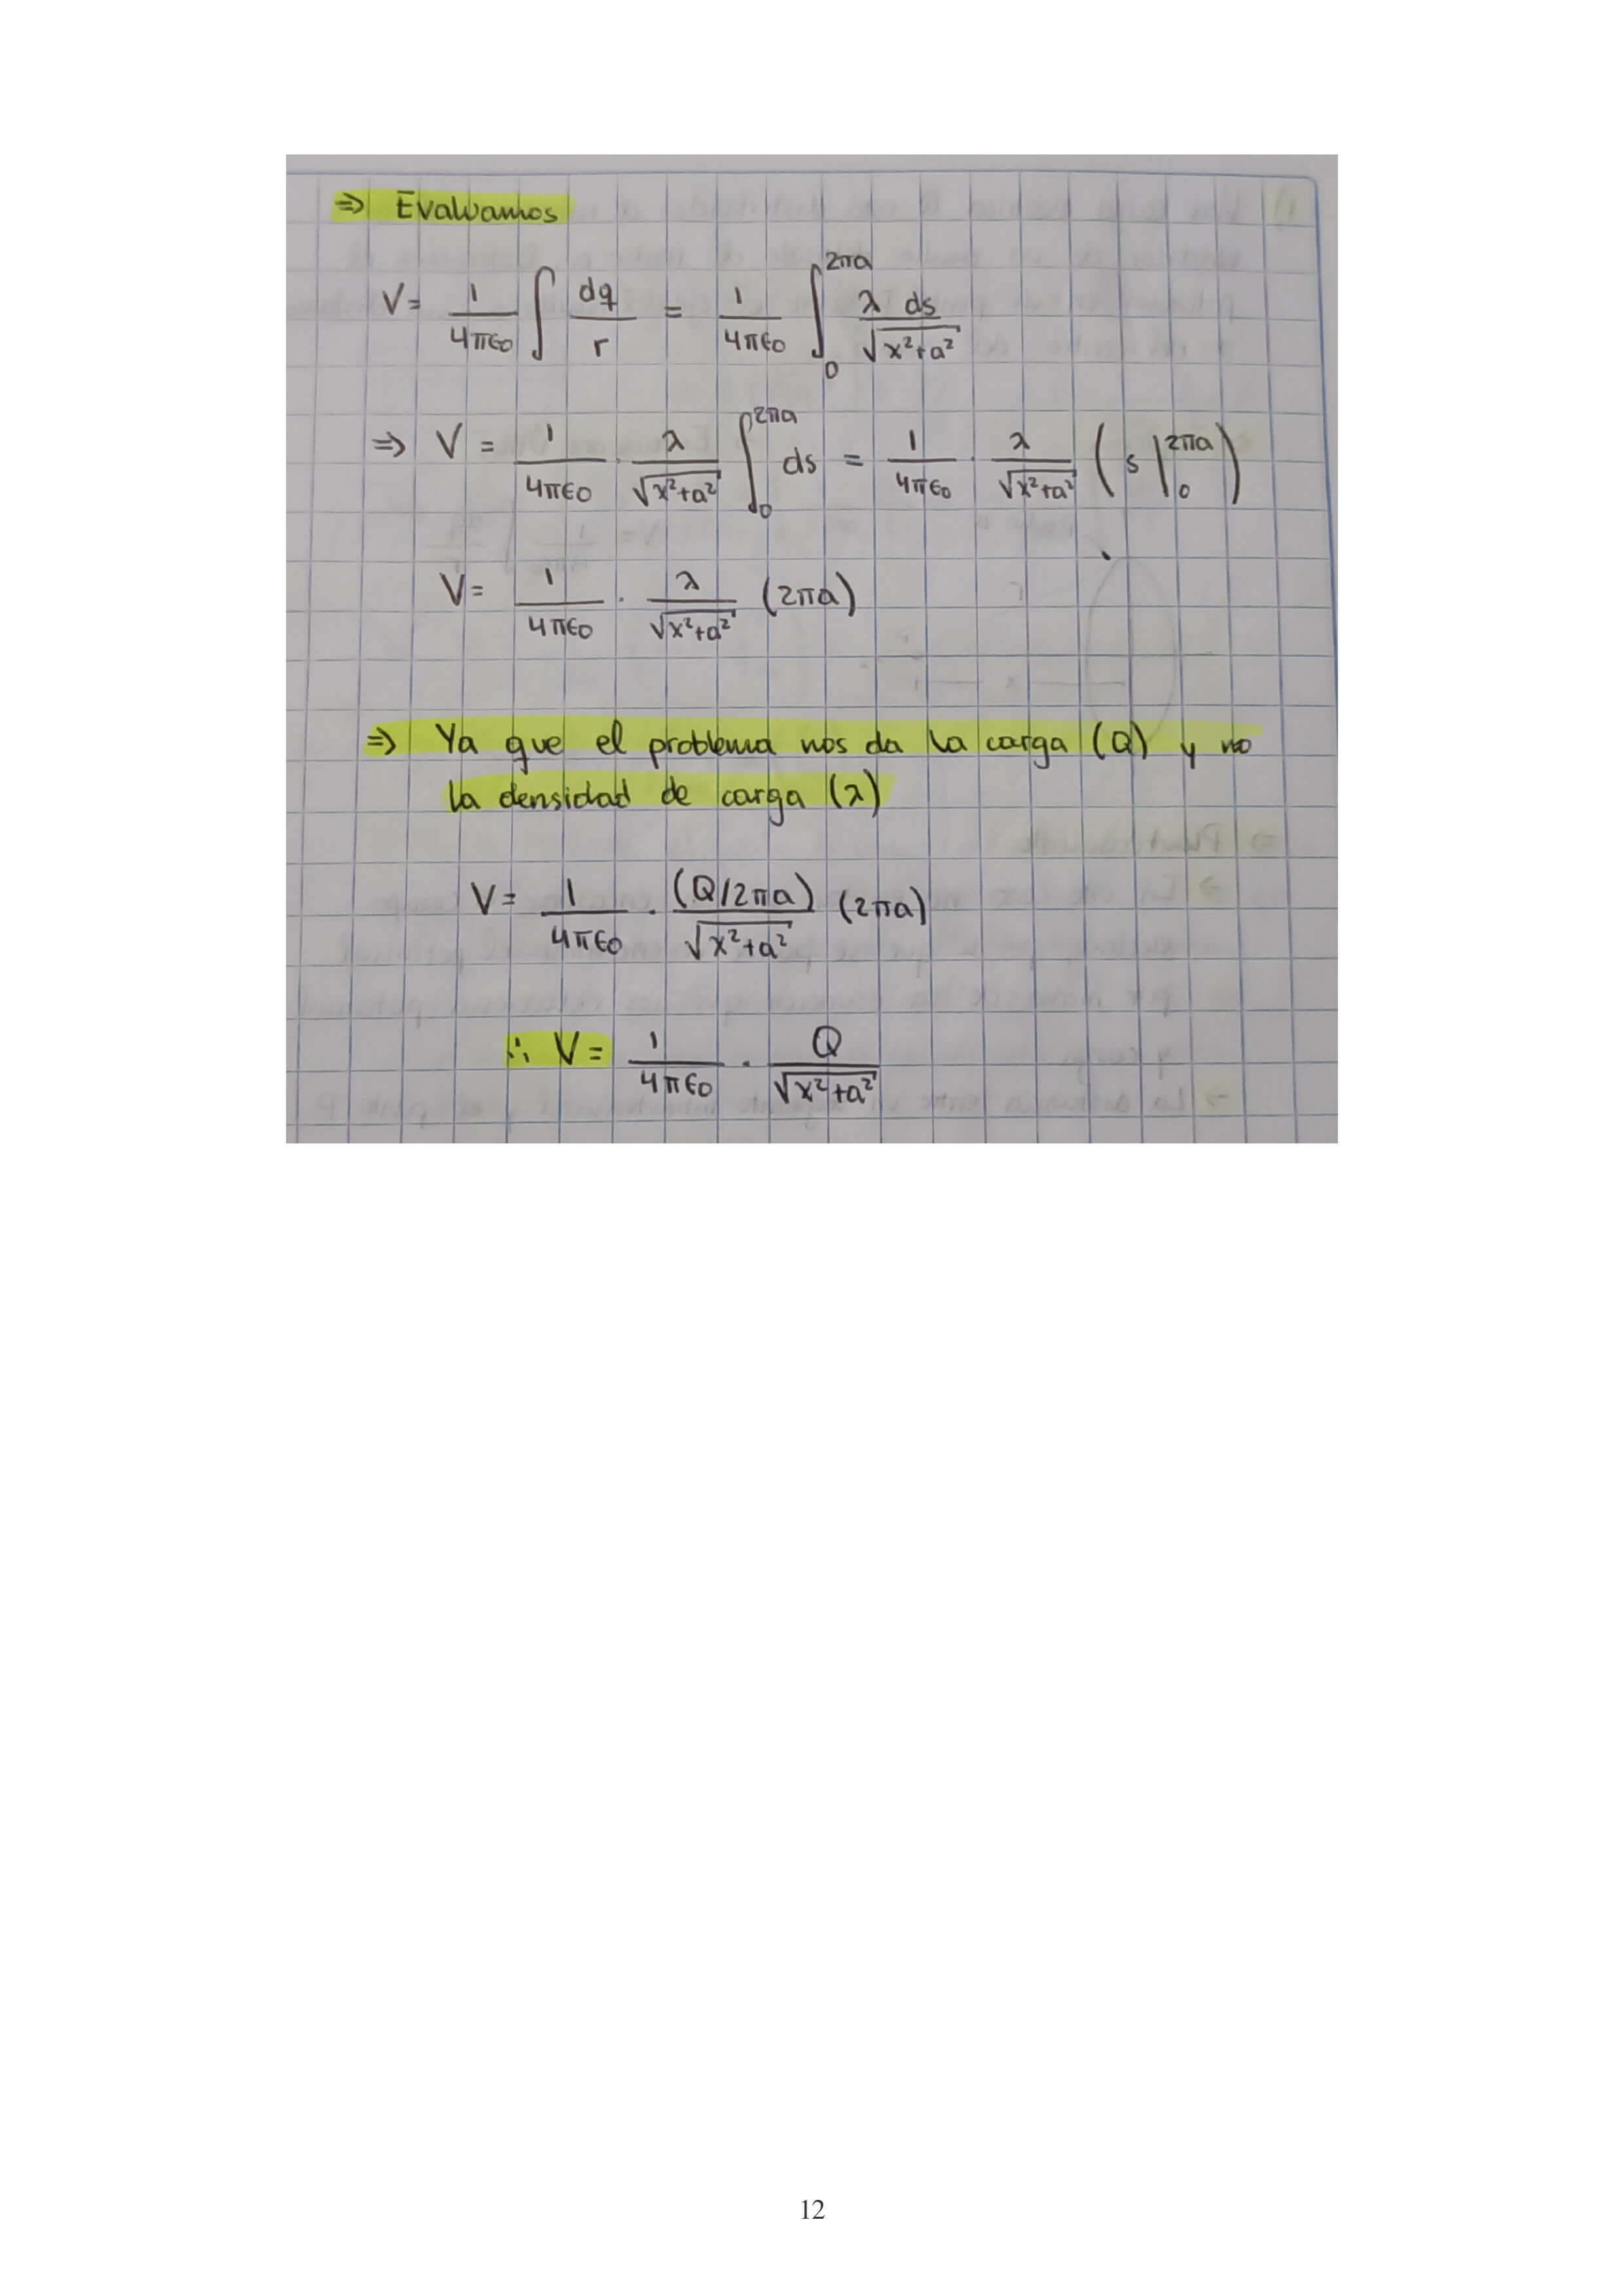 ⇒ Evaluamos
V = 1/4πϵ0 ∫ dq/r = 1/4πϵ0 ∫₀^2πa λ ds/√x²+a²
⇒ V = 1/4πϵ0 · λ/√x²+a² ∫₀^2πa ds = 1/4πϵ0 · λ/√x²+a² (s |₀^2πa)
V = 1/4πϵ0 · λ/√x²+a² (2πa)
⇒ Ya que el problema nos da la carga (Q) y no
la densidad de carga (λ)
V = 1/4πϵ0 · (Q/2πa)/√x²+a² (2πa)
∴ V = 1/4πϵ0 · Q/√x²+a²
12